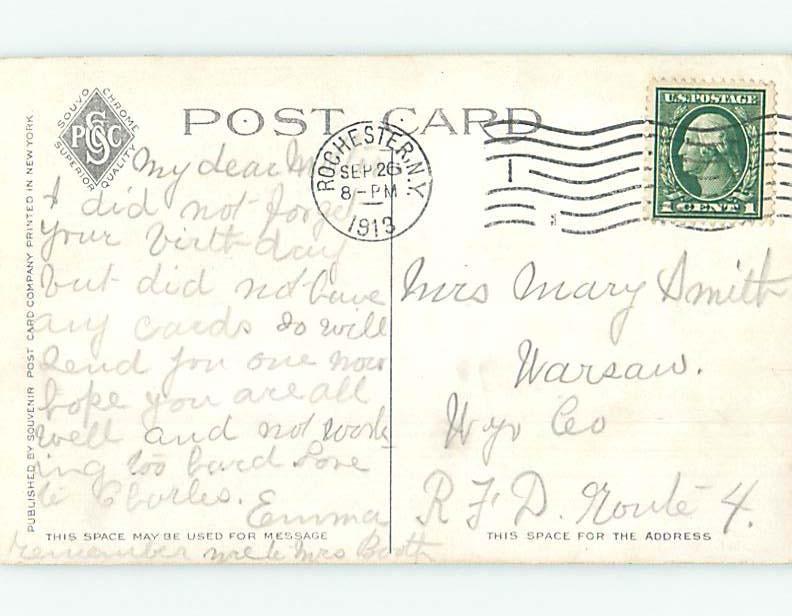 SOUVO CHROME
SUPERIOR QUALITY
PUBLISHED BY SOUVENIR POST CARD COMPANY PRINTED IN NEW YORK.
POST CARD
ROCHESTER, N.Y.
SEP 26
8-PM
1913
U.S. POSTAGE
1 CENT 1
My dear
I did not forget
your birth-day
but did not have
any cards so will
send you one now
hope you are all
well and not work
ing too hard Love
to Charles.
Emma
THIS SPACE MAY BE USED FOR MESSAGE
remember me to Mrs Booth
Mrs Mary Smith
Warsaw.
Wyo Co
R F D. Route 4.
THIS SPACE FOR THE ADDRESS